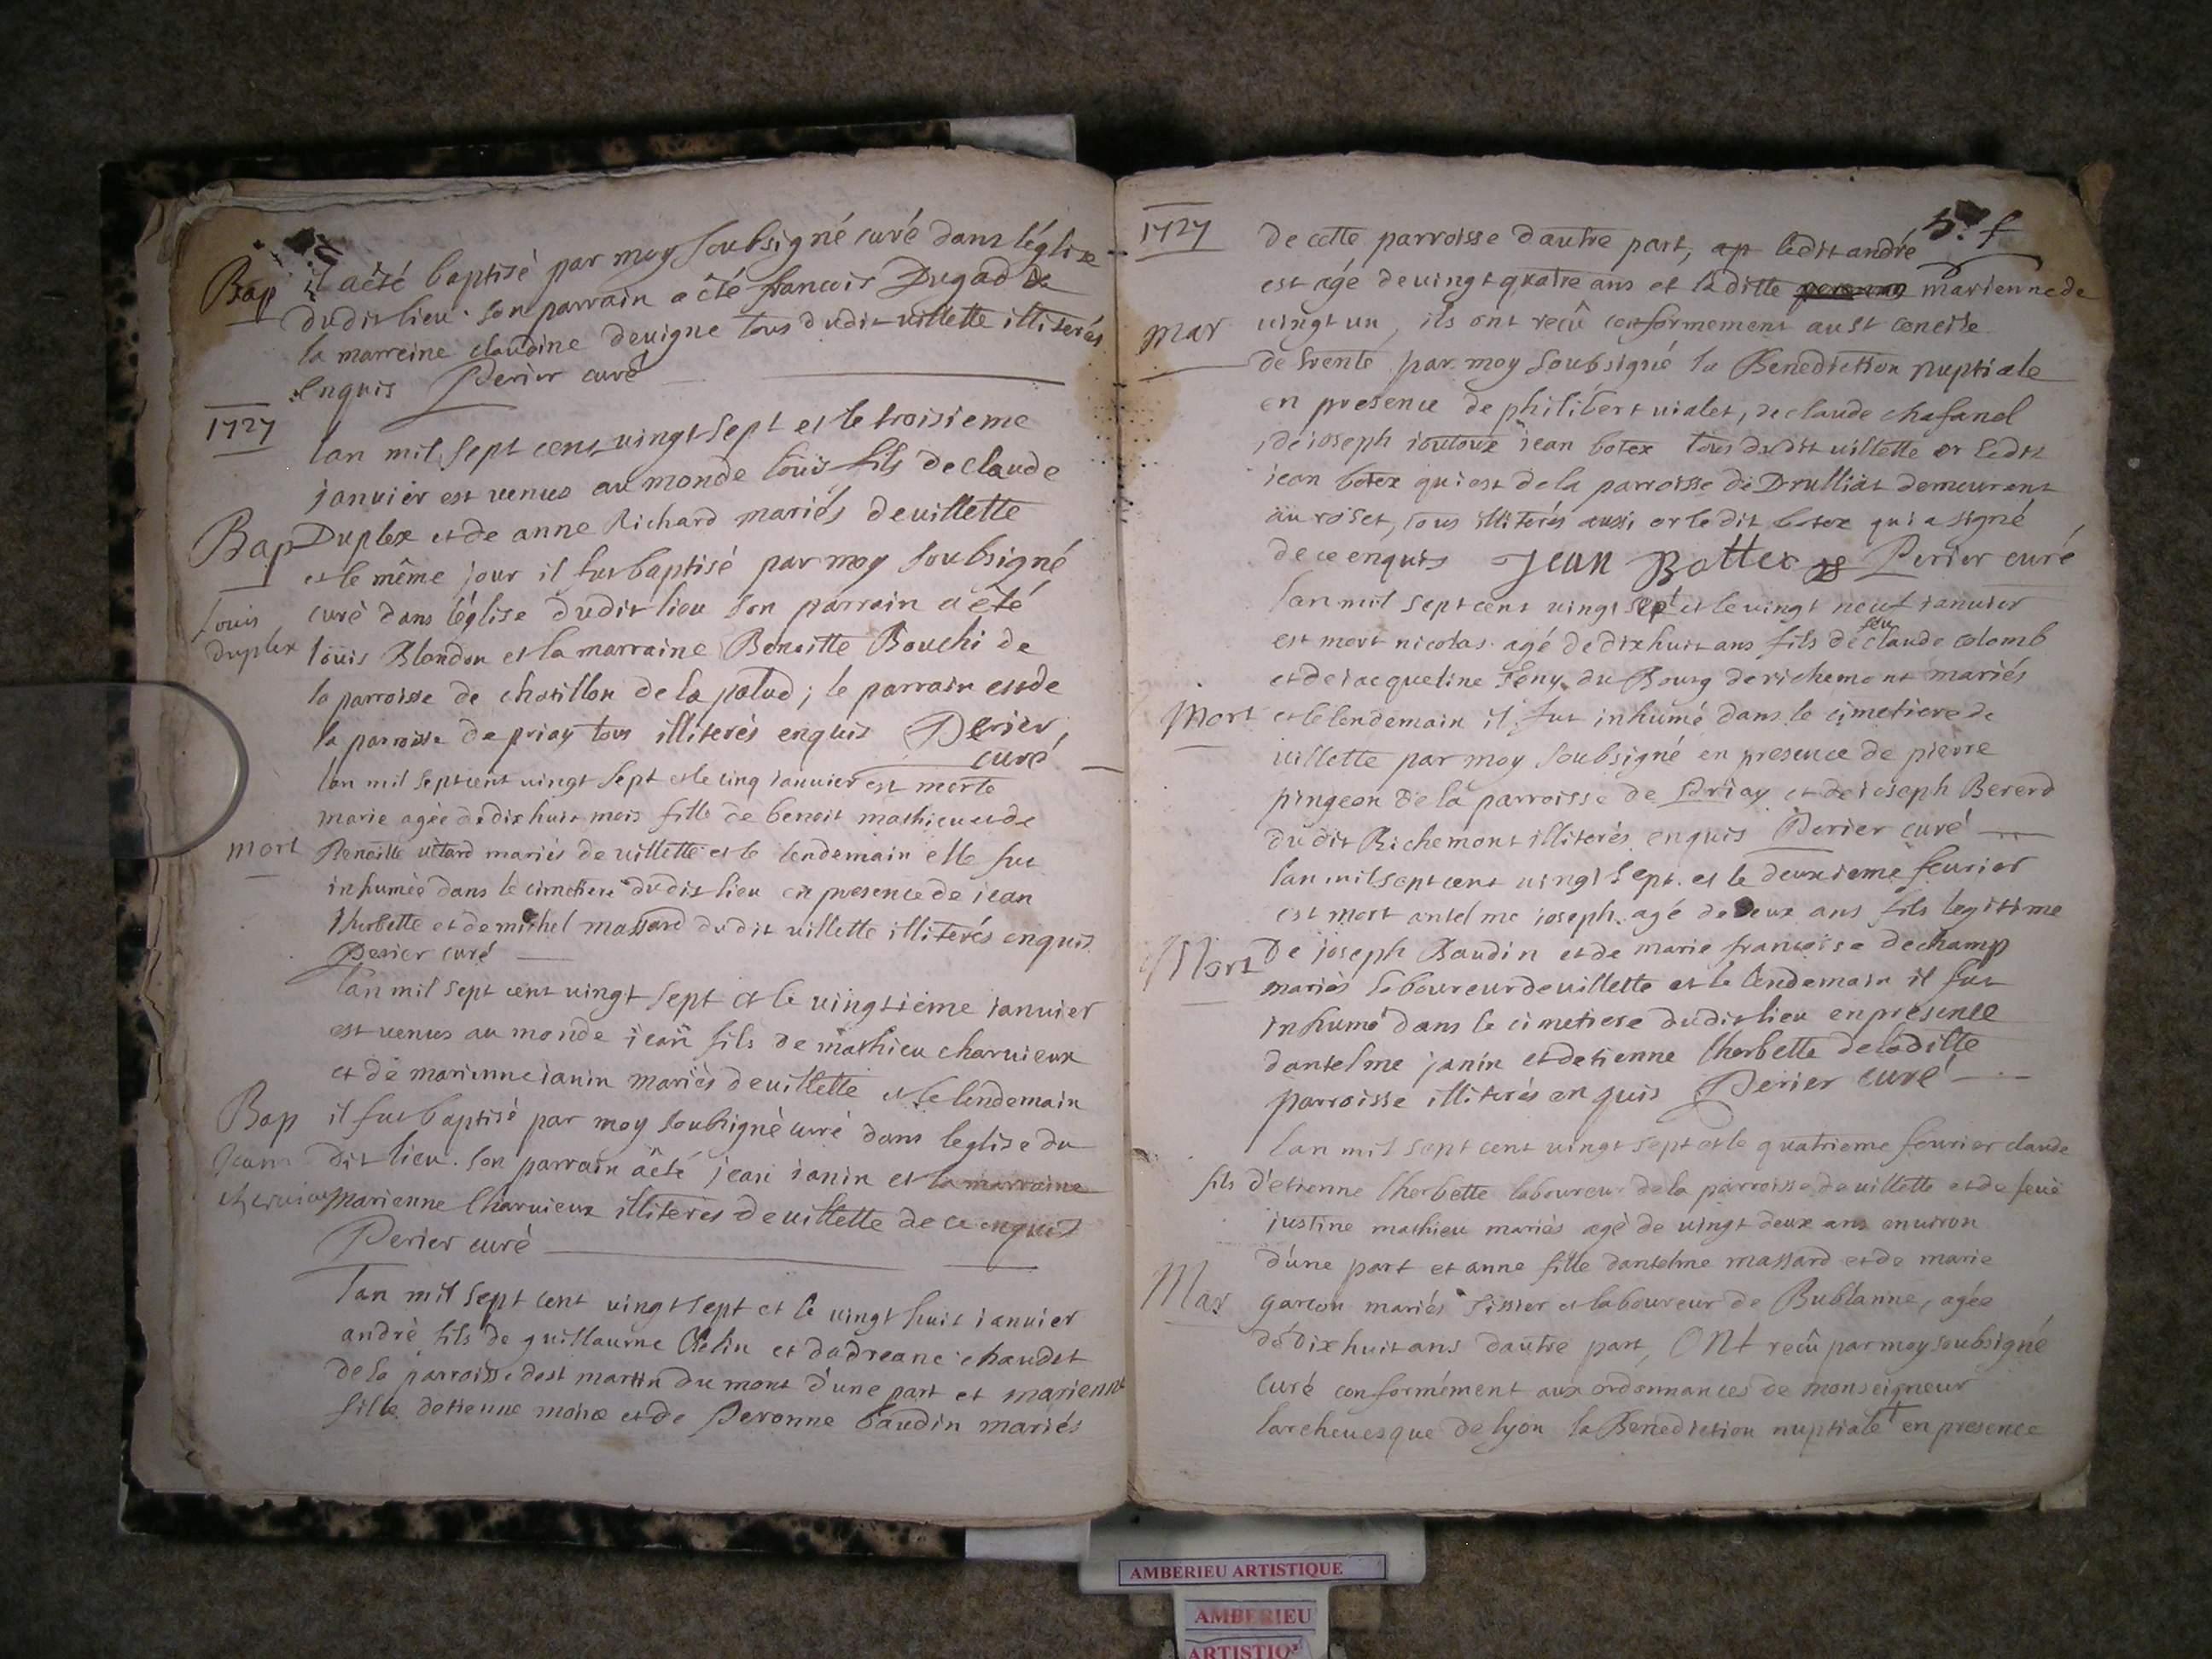 Bap il a êté baptisé par moy soubsigné curé dans léglise
dudit lieu. son parrain a êté francois Dugad &
la marreine claudine devigne tous dudit villette illiterés
enquis Perier curé
1727
lan mil sept cent vingt sept et le troisieme
janvier est venus au monde louis fils de claude
Bap Duplex et de anne Richard mariés de villette
et le même jour il fut baptisé par moy soubsigné
louis curé dans léglise dudit lieu son parrain a êté
duplex louis Blondon et la marraine Benoitte Bouchi de
la parroisse de chatillon de la palud; le parrain est de
la parroisse de priay tous illiterés enquis Perier,
curé
lan mil sept cent vingt sept et le cinq ianvier est morte
marie agée de dix huit mois fille de benoit mathieu et de
mort Benoitte uitard mariés de villette et le lendemain elle fut
inhumée dans le cimetiere dudit lieu en presence de iean
lherbette et de michel massard dudit villette illiterés enquis
Perier curé
lan mil sept cent vingt sept et le vingtieme ianvier
est venus au monde iean fils de mathieu charvieux
et de marienne ianin mariés de villette et le lendemain
Bap il fut baptisé par moy soubsigné curé dans leglise du
Jean dit lieu. son parrain a êté jean ianin et la marraine
charvieux marienne Charvieux illiterés de villette de ce enquis
Perier curé
lan mil sept cent vingt sept et le vingt huit ianvier
andré fils de guillaume et dadreane chaudet
de la parroisse dest martin du mont d'une part et marienne
fille detienne moine et de Peronne baudin mariés
1727
5. f
de cette parroisse dautre part, ap ledit andré
est agé de vingt quatre ans et la ditte marienne de
mar vingt un, ils ont recû conformement au st concile
de trente par moy soubsigné la Benediction nuptiale
en presence de philibert vialet, de claude chafanel
, de ioseph ioutoux iean botex tous dudit villette or ledit
iean botex qui est de la parroisse de Drulliat demeurent
au roset, tous illiterés aussi or le dit botex qui a signé
de ce enquis Jean Bottex Perier curé
lan mil sept cent vingt sept et le vingt neuf ianvier
feu
est mort nicolas agé de dix huit ans fils de claude colomb
et de iacqueline feny du Bourg de richemont mariés
Mort et le lendemain il fut inhumé dans le cimetiere de
villette par moy soubsigné en presence de pierre
pingeon de la parroisse de Priay et de ioseph Bererd
du dit Richemont illiterés enquis Perier curé
lan mil sept cent vingt sept. et le deuxieme fevrier
est mort antelme ioseph agé de deux ans fils legitime
Mort de joseph Baudin et de marie francoise dechamp
mariés laboureur de villette et le lendemain il fut
inhumé dans le cimetiere dudit lieu en presence
dantelme janin et detienne lherbette de la ditte
parroisse illiterés enquis Perier curé
lan mil sept cent vingt sept et le quatrieme fevrier claude
fils d'etienne lherbette laboureur de la parroisse de villette et de feue
justine mathieu mariés agé de vingt deux ans environ
d'une part et anne fille dantelme massard et de marie
Mar garcon mariés tissier et laboureur de Bublanne, agée
de dix huit ans dautre part, ont recû par moy soubsigné
curé conformément aux ordonnances de monseigneur
larchevesque de lyon la Benediction nuptiale en presence
AMBERIEU ARTISTIQUE
AMBERIEU
ARTISTIQ